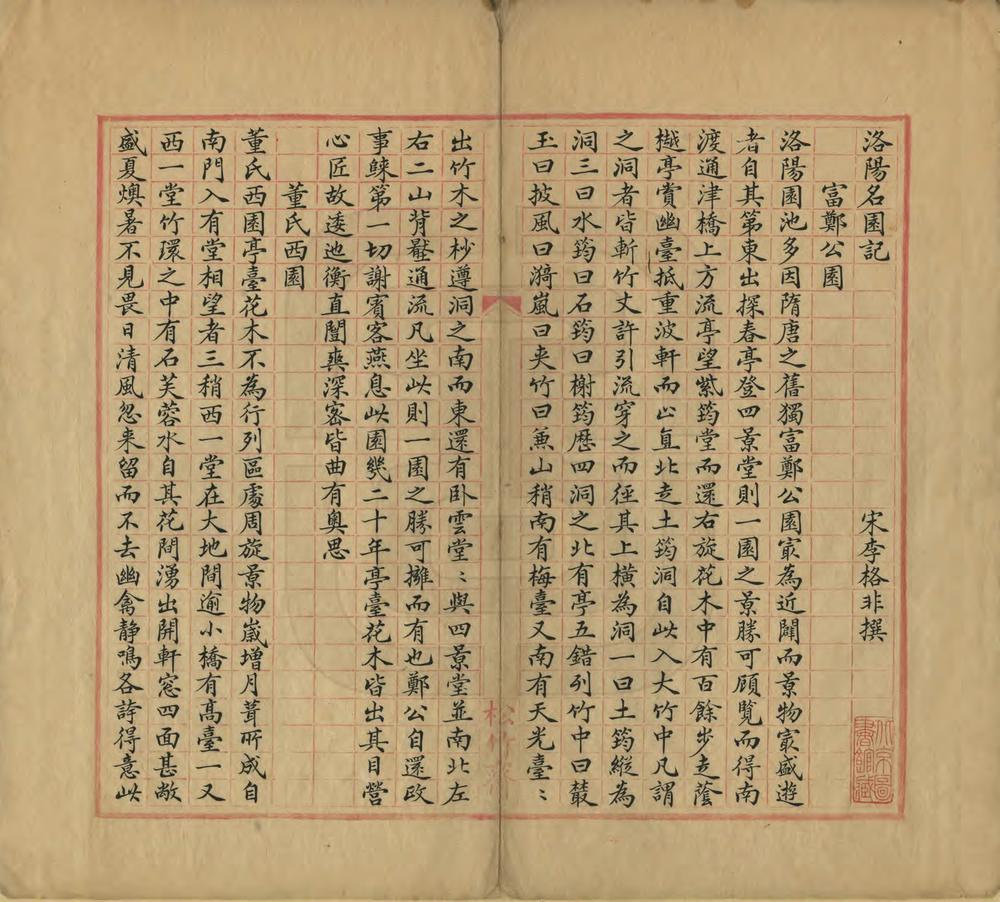 洛陽名園記
宋李格非撰
富鄭公園
洛陽園池多因隋唐之舊獨富鄭公園㝡為近闢而景物㝡盛遊
者自其第東出探春亭登四景堂則一園之景勝可顧覽而得南
渡通津橋上方流亭望紫筠堂而還右旋花木中有百餘步走蔭
樾亭賞幽臺抵重波軒而止直北走土筠洞自此入大竹中凡謂
之洞者皆斬竹丈許引流穿之而徑其上橫為洞一曰土筠縱為
洞三曰水筠曰石筠曰榭筠歷四洞之北有亭五錯列竹中曰藂
玉曰披風曰漪嵐曰夾竹曰兼山稍南有梅臺又南有天光臺〻
出竹木之杪遵洞之南而東還有卧雲堂〻與四景堂並南北左
右二山背壓通流凡坐此則一園之勝可擁而有也鄭公自還政
事歸第一切謝賓客燕息此園幾二十年亭臺花木皆出其目營
心匠故逶迤衡直闓爽深密皆曲有奧思
董氏西園
董氏西園亭臺花木不為行列區處周旋景物歲增月葺所成自
南門入有堂相望者三稍西一堂在大地間逾小橋有高臺一又
西一堂竹環之中有石芙蓉水自其花間湧出開軒窓四面甚敞
盛夏燠暑不見畏日清風忽来留而不去幽禽静鳴各誇得意此
松竹齋
北京圖
書館藏